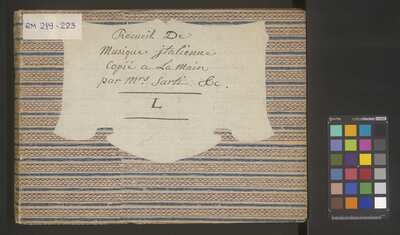 RM 219-223
Recueil De
Musique jtalienne
Copié a La main
par Mrs. Sarti &c.
L